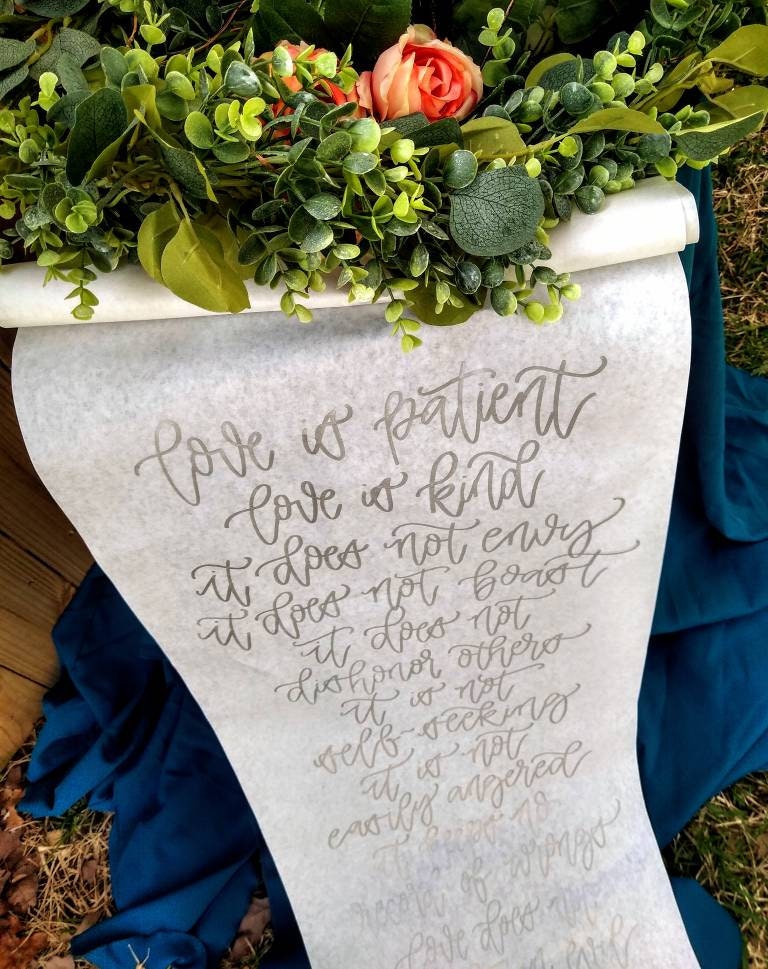 love is patient
love is kind
it does not envy
it does not boast
it does not
dishonor others
it is not
self-seeking
it is not
easily angered
it keeps no
record of wrongs
love does not
evil